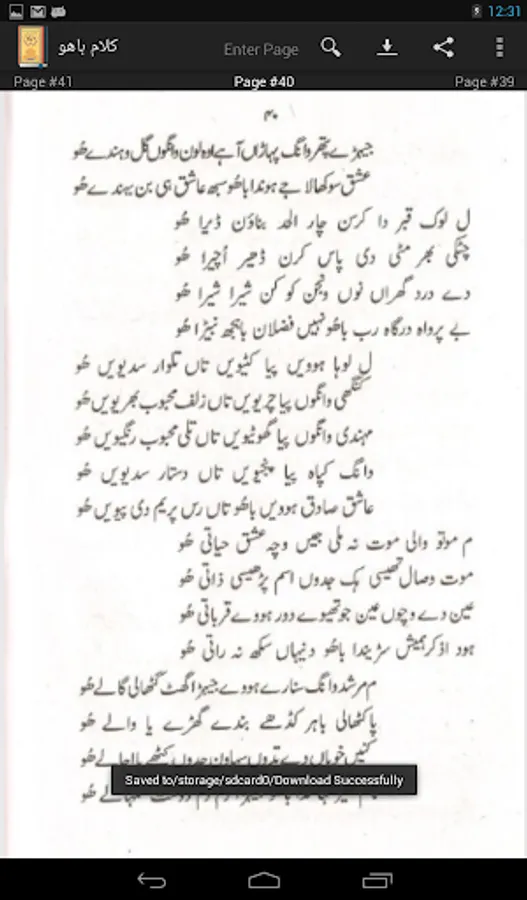 12:31
کلام باھو
Enter Page
Page #41
Page #40
Page #39
۴۰
جیہڑے پتھر وانگ پہاڑاں آہے اوہ لون وانگوں گل وہندے ھُو
عشق سوکھالا جے ہوندا باھُو سبھ عاشق ہی بن بہندے ھُو
ل لوک قبر دا کرسن چار الحد بناؤن ڈیرا ھُو
چٹکی بھر مٹی دی پاس کرن ڈھیر اُچیرا ھُو
دے درد گھراں نوں ونجن کوکن شیرا شیرا ھُو
بے پرواہ درگاہ رب باھُو نہیں فضلاں باہجھ نبیڑا ھُو
ل لوہا ہوویں پیا کٹیویں تاں تلوار سدیویں ھُو
کنگھی وانگوں پیا چریویں تاں زلف محبوب بھریویں ھُو
مہندی وانگوں پیا گھوٹیویں تاں تلی محبوب رنگیویں ھُو
وانگ کپاہ پیا پنجیویں تاں دستار سدیویں ھُو
عاشق صادق ہوویں باھُو تاں رس پریم دی پیویں ھُو
م موتو والی موت نہ ملی جیں وچہ عشق حیاتی ھُو
موت وصال تھیسی ہک جدوں اسم پڑھیسی ذاتی ھُو
عین دے وچوں عین جو تھیوے دور ہووے قرباتی ھُو
ہود اذکر ہمیش سڑیندا باھُو دنیہاں سکھ نہ راتی ھُو
م مرشد وانگ سنارے ہووے جیہڑا گھٹ گٹھالی گالے ھُو
پا کٹھالی باہر کڈھے بندے گھڑے یا والے ھُو
کنیں خوباں دے تدوں سہاون جدوں ھُو
ھُو
Saved to/storage/sdcard0/Download Successfully